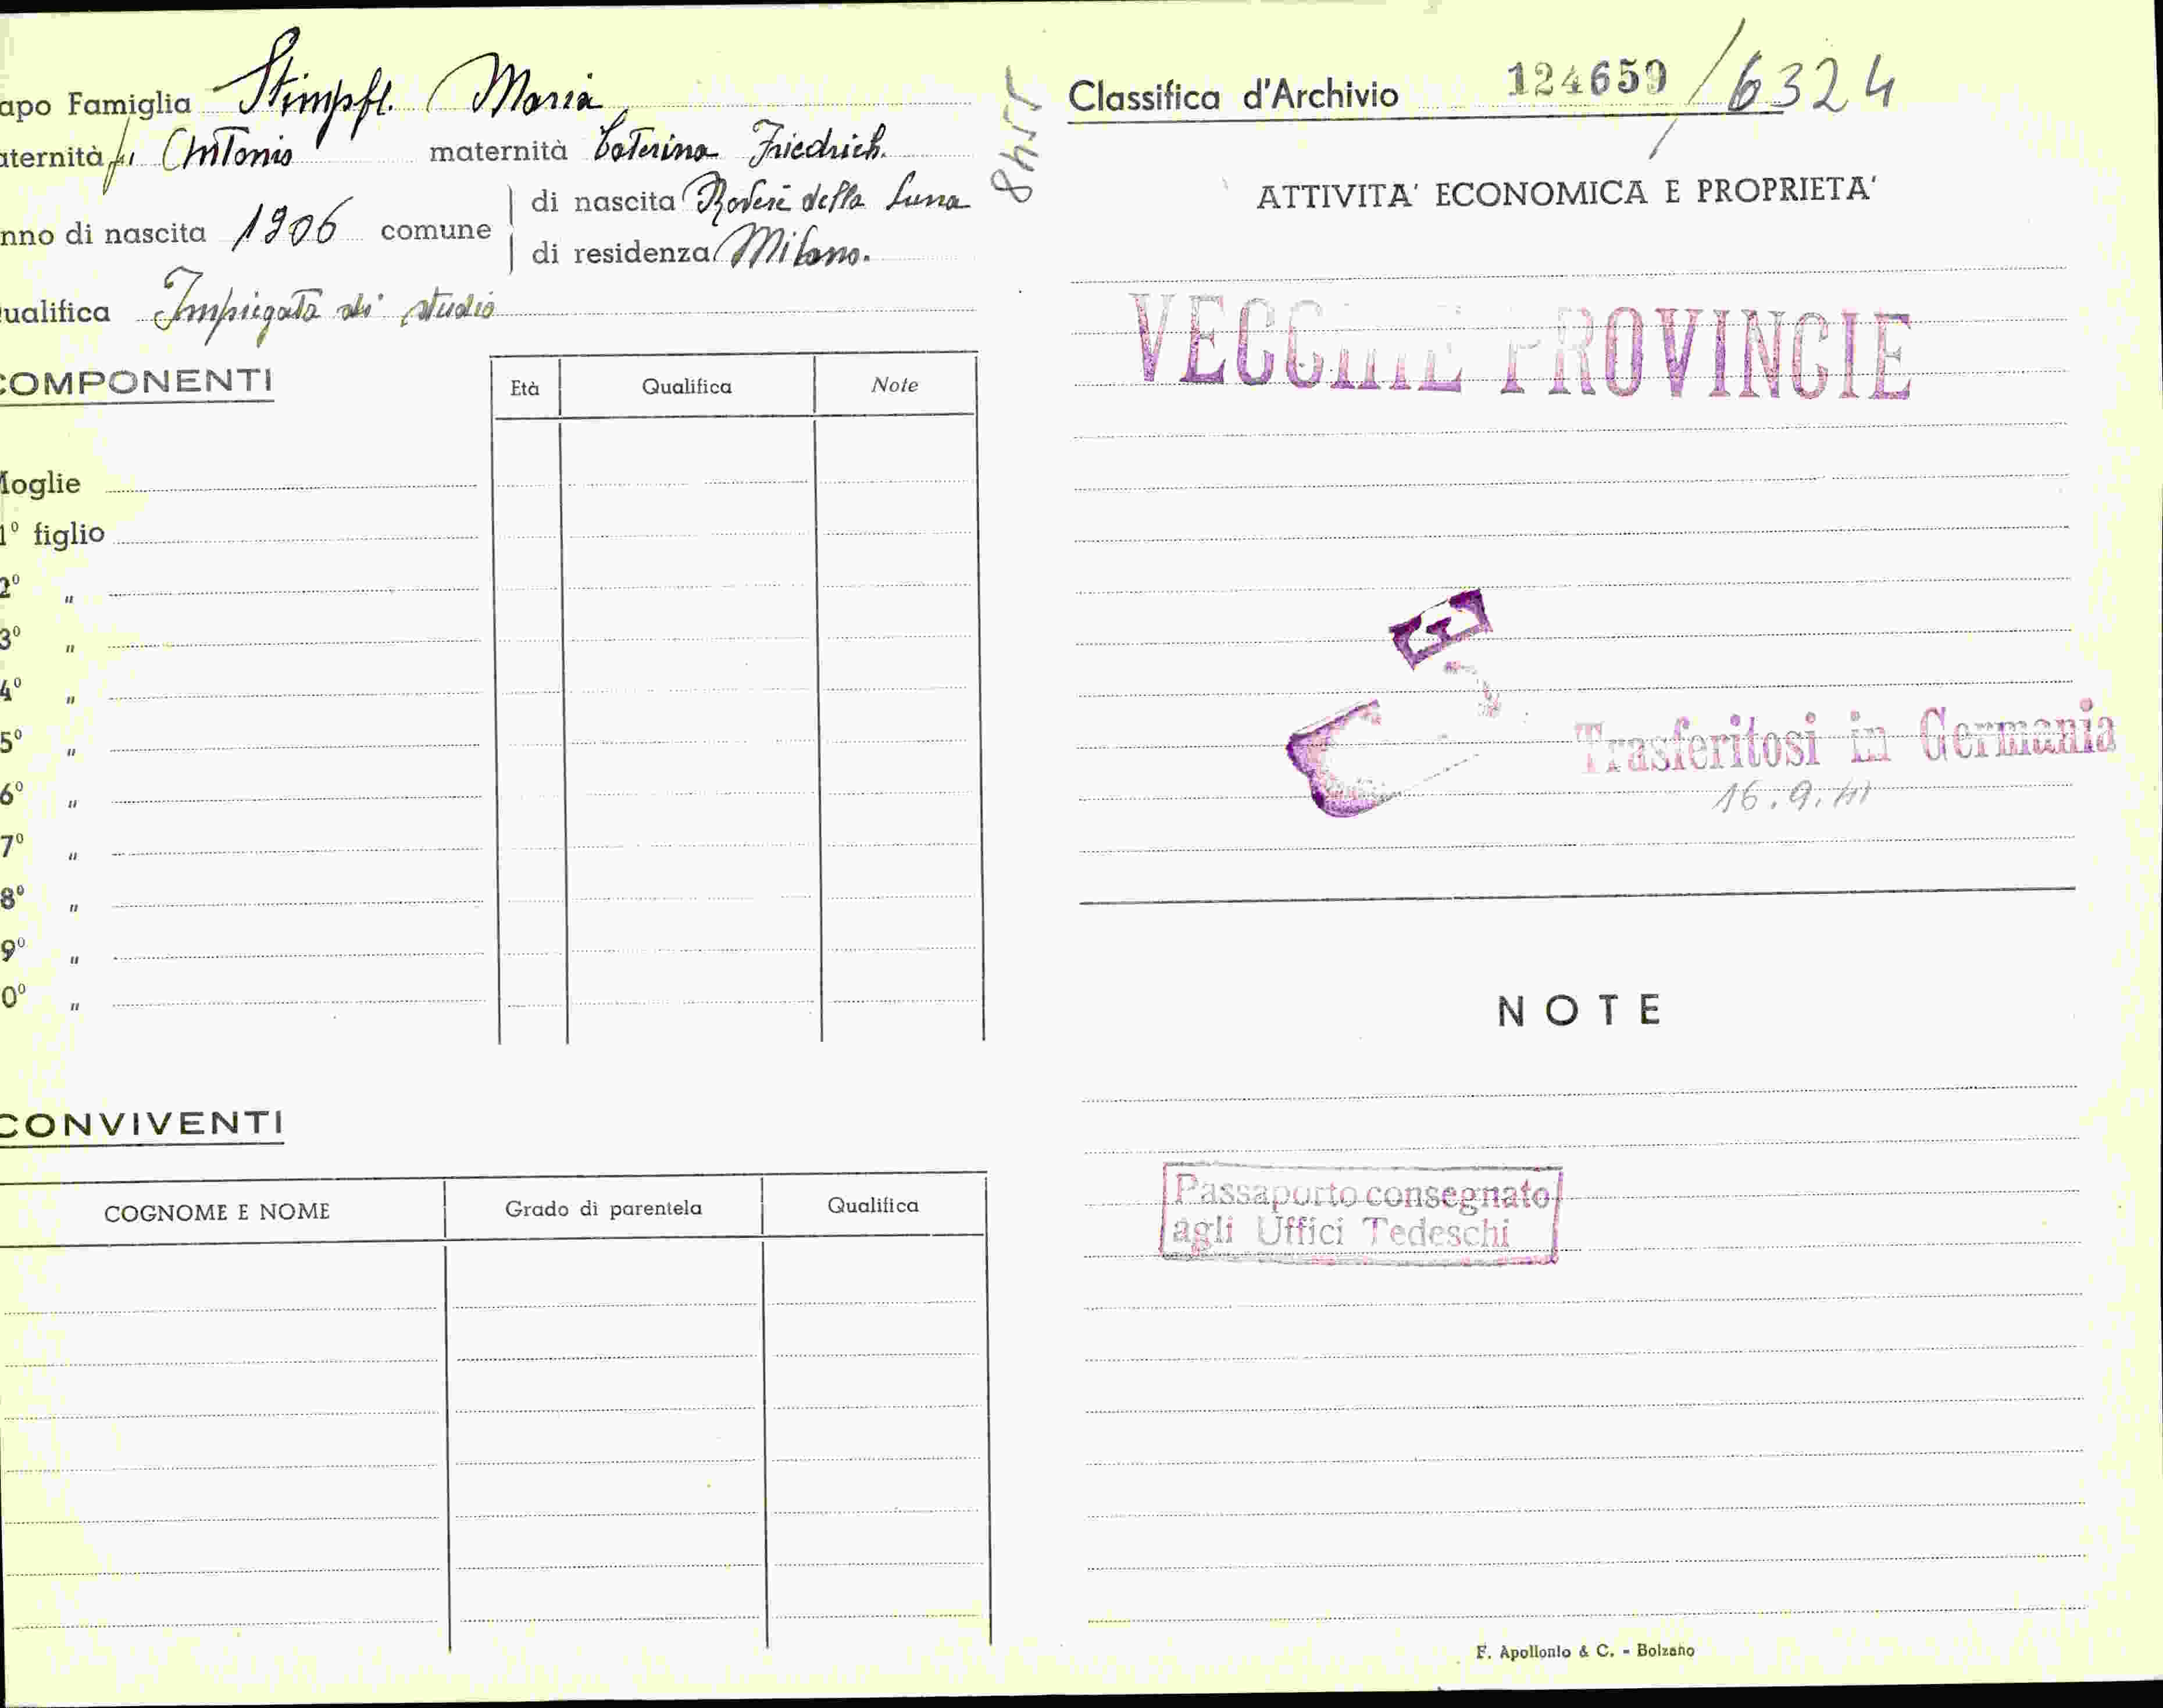 apo Famiglia Stimpfl Maria
aternità fu Antonio maternità Caterina Friedrich.
nno di nascita 1906 comune di nascita Roverè della Luna
di residenza Milano.
ualifica Impiegata di studio
COMPONENTI
Età Qualifica Note
Moglie
1º figlio
2º "
3º "
4º "
5º "
6º "
7º "
8º "
9º "
0º "
CONVIVENTI
COGNOME E NOME Grado di parentela Qualifica
Classifica d'Archivio 124659 / 6324
ATTIVITA' ECONOMICA E PROPRIETA'
VECCHIE PROVINCIE
Trasferitosi in Germania
16.9.41
NOTE
Passaporto consegnato
agli Uffici Tedeschi
F. Apollonio & C. - Bolzano